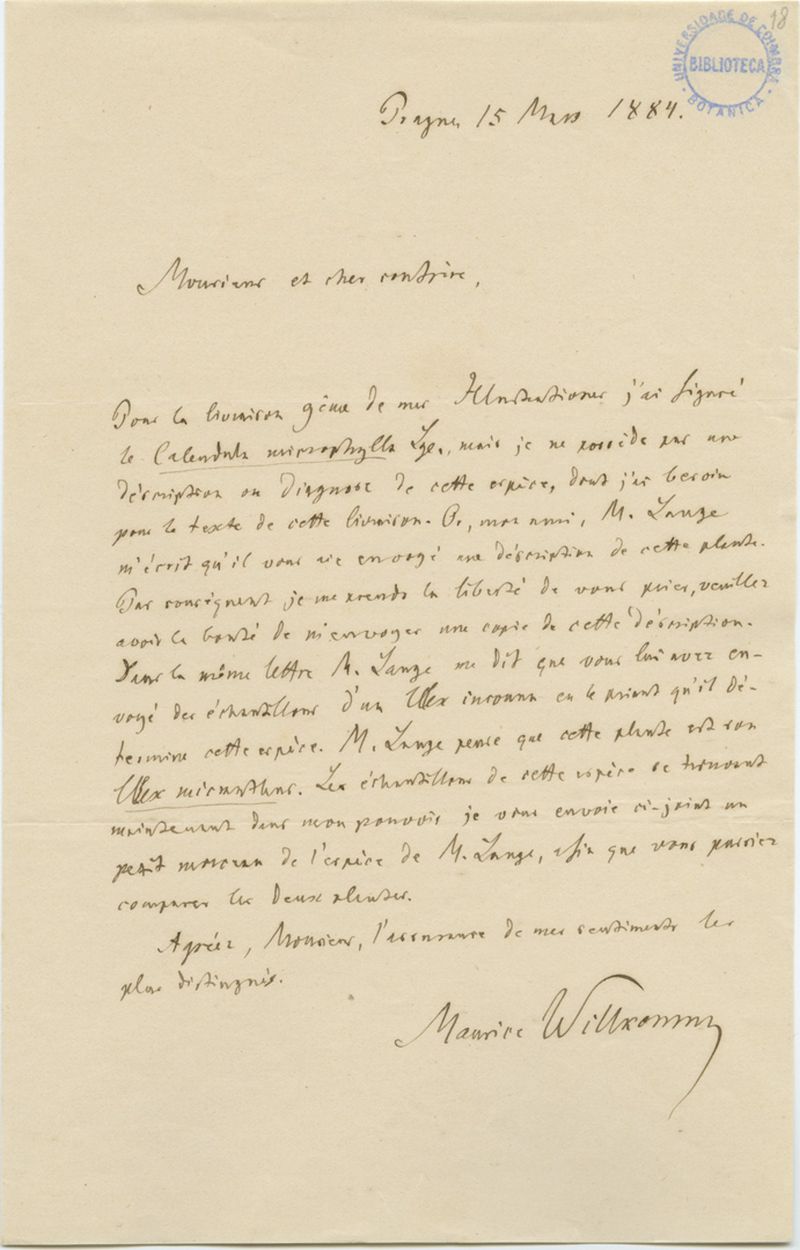 18
UNIVERSIDADE DE COIMBRA
BIBLIOTECA
BOTANICA
Prague 15 Mars 1884.
Monsieur et cher confrère,
Pour la livraison 9ème de mes Illustrationes j'ai figuré
le Calendula microphylla Lge., mais je ne possède pas une
déscription ou diagnose de cette espèce, dont j'ai besoin
pour le texte de cette livraison. Or, mon ami, M. Lange
m'écrit qu'il vous aie envoyé une déscription de cette plante.
Par conséquent je me prends la liberté de vous prier, veuillez
avoir la bonté de m'envoyer une copie de cette déscription.
Dans la même lettre M. Lange me dit que vous lui avez en-
voyé des échantillons d'un Ulex inconnu en le priant qu'il dé-
termine cette espèce. M. Lange pense que cette plante est son
Ulex micranthus. Les échantillons de cette espèce se trouvant
maintenant dans mon pouvoir je vous envoie ci-joint un
petit morceau de l'espèce de M. Lange, afin que vous puissiez
comparer les deux plantes.
Agréez, Monsieur, l'assurance de mes sentiments les
plus distingués.
Maurice Willkomm